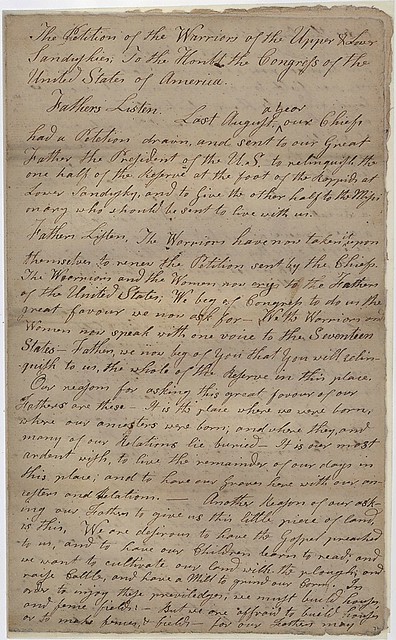 The Petition of the Warriors of the Upper & Lower
Sanduskies; To the Honble the Congress of the
United States of America.
Fathers Listen.
a year
Last August, our Chiefs
had a Petition drawn, and sent to our Great
Father the President of the U.S. to relinquish the
one half of the Reserve at the foot of the Rapids at
Lower Sandusky, and to Give the other half to the Missi
onary who should be sent to live with us.
Fathers Listen, The Warriors have now taken upon
themselves to renew the Petition sent by the Chiefs.
The Warriors and the Women now cry to the Fathers
of the United States; We beg of Congress to do us the
great favour we now ask for — We the Warriors and
Women now speak with one voice to the Seventeen
States — Father, we now beg of You that You will relin-
quish to us, the whole of the Reserve in this place.
Our reasons for asking this great favour of our
Fathers are these — It is the place where we were born,
where our ancestors were born; and where they, and
many of our Relations lie buried — It is our most
ardent wish, to live the remainder of our days in
this place; and to have our Graves here with our an
cesters and Relations. — Another Reason of our ask-
ing our Fathers to give us this little piece of land,
is this, We are desirous to have the Gospel preached
to us, and to have our Children learn to read; and
we want to cultivate our land with the plough; and
raise Cattle, and have a Mill to grind our Corn. In
order to enjoy these priviledges, we must build houses,
and fence fields: — But we are affraid to build houses
or to make fences, & fields — for our Fathers may